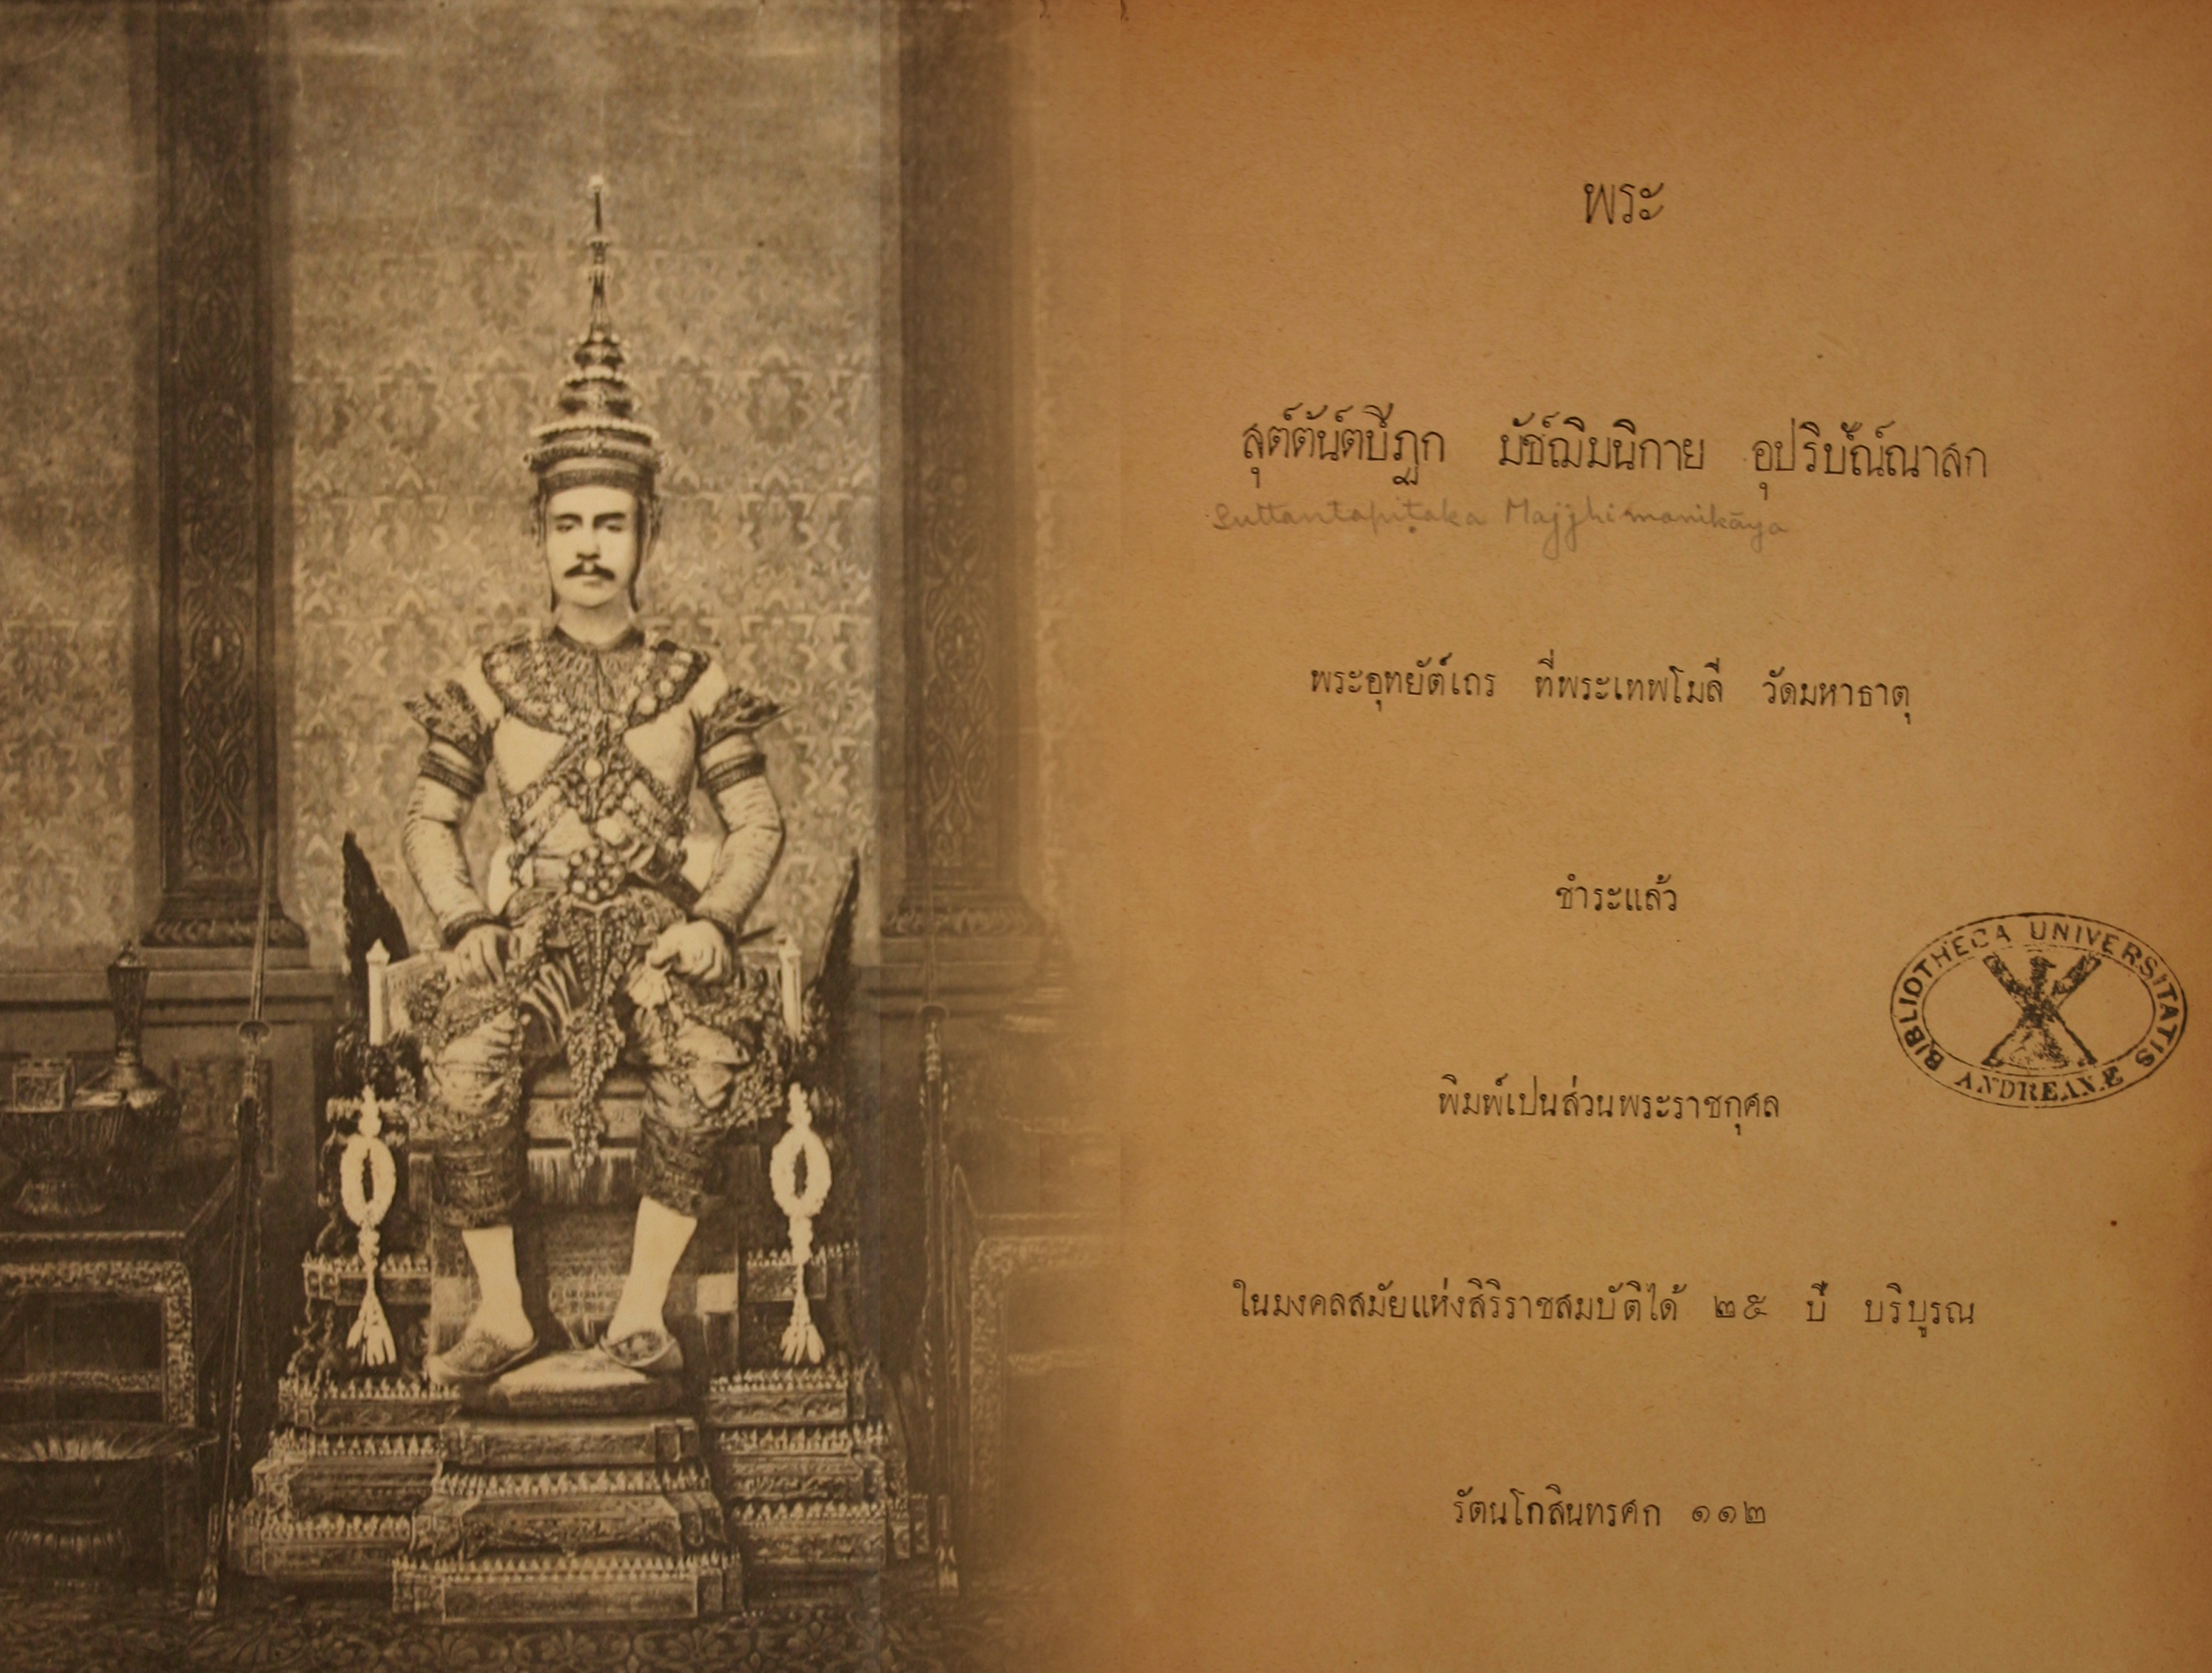 พระ
สุต์ตัน์ตปิฎก มัช์ฌิมนิกาย อุปริปัณ์ณาสก
Suttantapiṭaka Majjhimanikāya
พระอุทยัต์เถร ที่พระเทพโมลี วัดมหาธาตุ
ชำระแล้ว
BIBLIOTHECA UNIVERSITATIS
ANDREANÆ
พิมพ์เปนส่วนพระราชกุศล
ในมงคลสมัยแห่งสิริราชสมบัติได้ ๒๕ ปี บริบูรณ
รัตนโกสินทรศก ๑๑๒